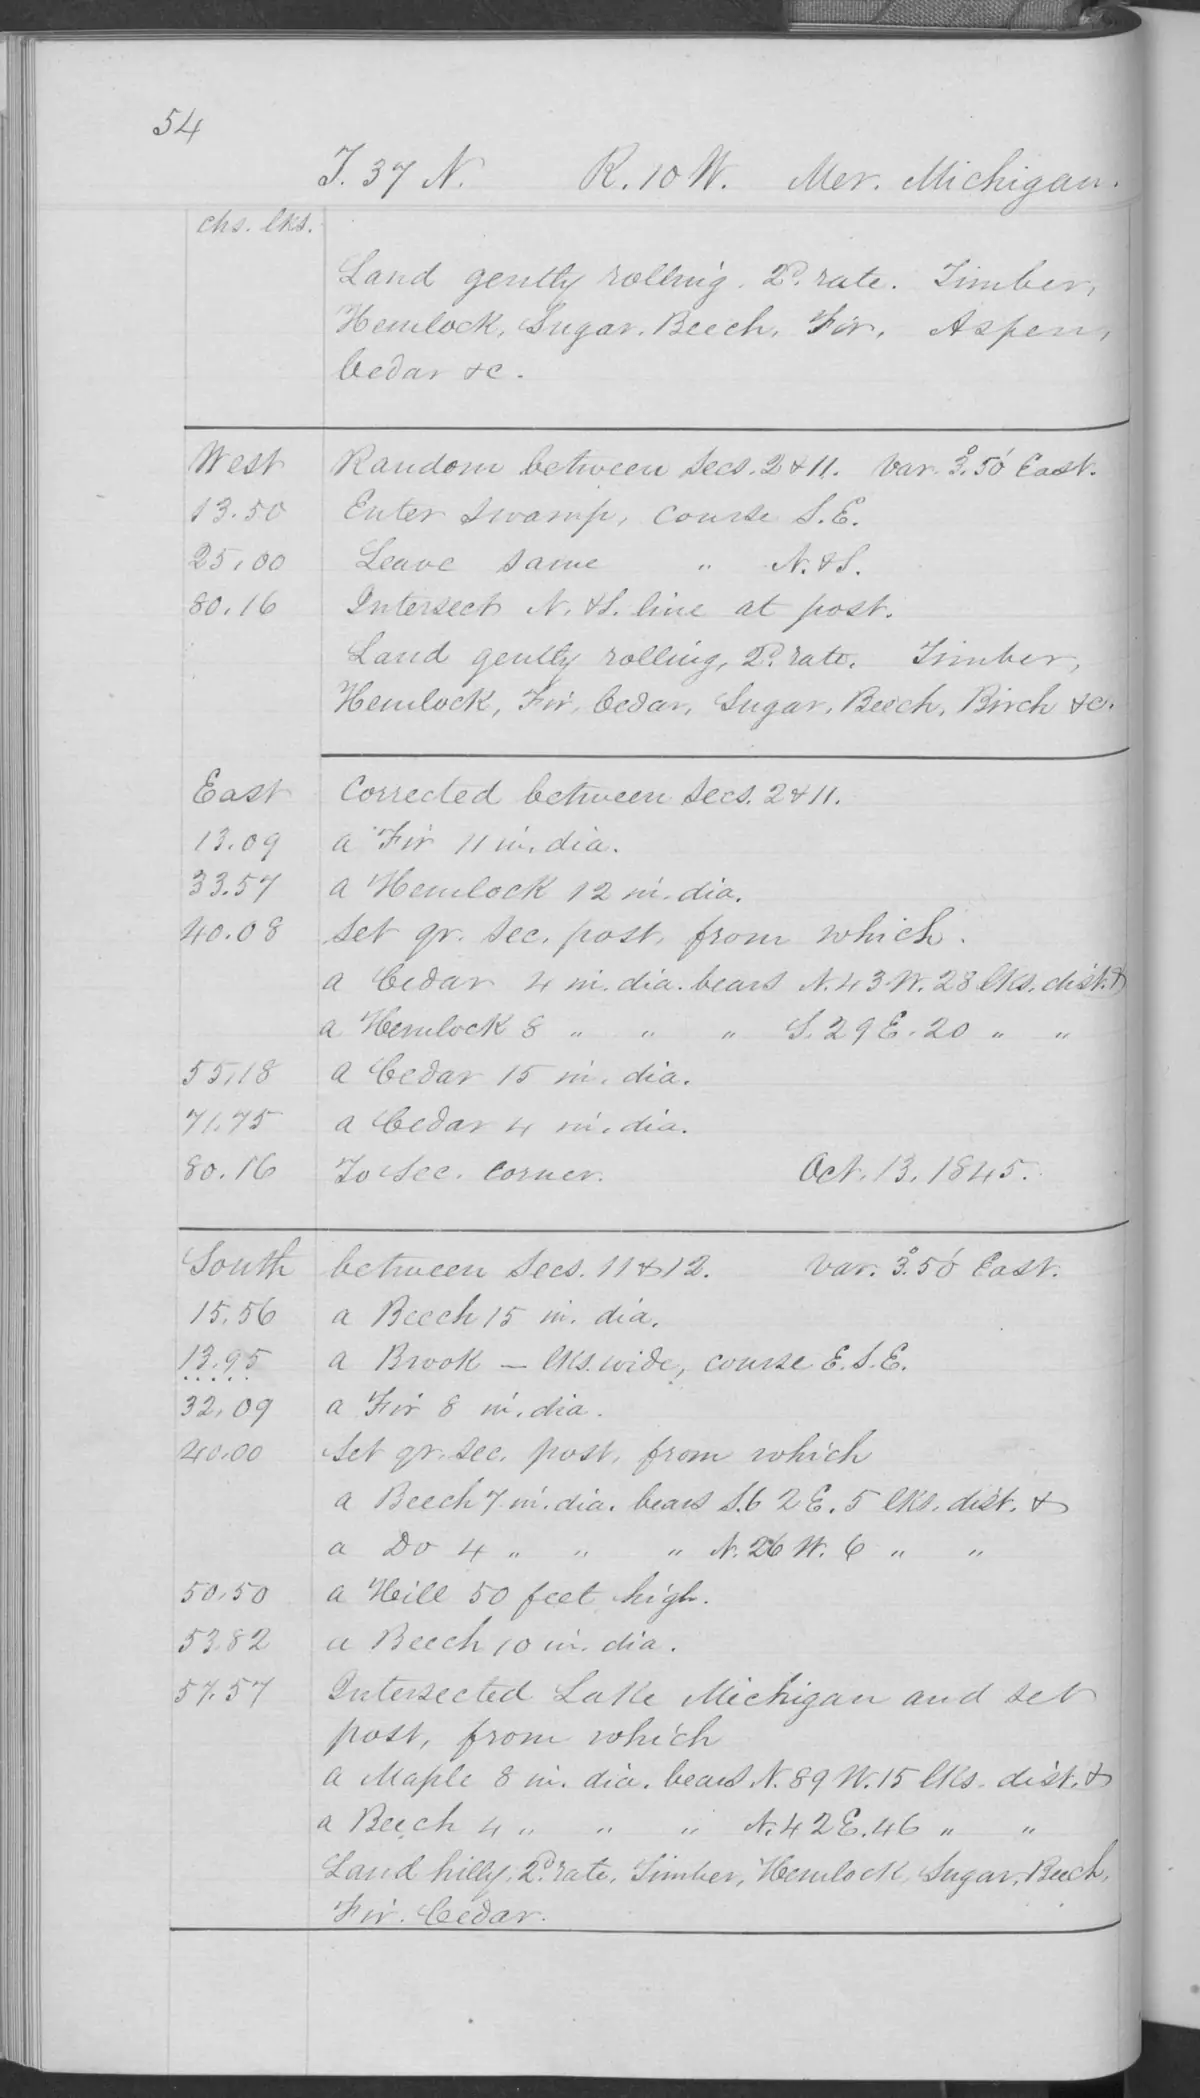 54
T. 37 N. R. 10 W. Mer. Michigan.
chs. lks.
Land gently rolling. 2d. rate. Timber,
Hemlock, Sugar, Beech, Fir, Aspen,
Cedar &c.
West Random between Secs. 2 & 11. Var. 3°.50' East.
13.50 Enter swamp, course S.E.
25.00 Leave same " N. & S.
80.16 Intersect N. & S. line at post.
Land gently rolling, 2d. rate. Timber,
Hemlock, Fir, Cedar, Sugar, Beech, Birch &c.
East Corrected between Secs. 2 & 11.
13.09 a Fir 11 in. dia.
33.57 a Hemlock 12 in. dia.
40.08 Set qr. Sec. post, from which
a Cedar 4 in. dia. bears N. 43 W. 28 lks. dist. &
a Hemlock 8 " " " S. 29 E. 20 " "
55.18 a Cedar 15 in. dia.
71.75 a Cedar 4 in. dia.
80.16 To Sec. corner. Oct. 13. 1845.
South between Secs. 11 & 12. Var. 3°.50' East.
15.56 a Beech 15 in. dia.
13.95 a Brook — lks. wide, course E.S.E.
32.09 a Fir 8 in. dia.
40.00 Set qr. Sec. post, from which
a Beech 7 in. dia. bears S. 62 E. 5 lks. dist. &
a Do 4 " " " N. 26 W. 6 " "
50.50 a Hill 50 feet high.
53.82 a Beech 10 in. dia.
57.57 Intersected Lake Michigan and set
post, from which
a Maple 8 in. dia. bears N. 89 W. 15 lks. dist. &
a Beech 4 " " " N. 42 E. 46 " "
Land hilly, 2d. rate, Timber, Hemlock, Sugar, Beech,
Fir. Cedar.